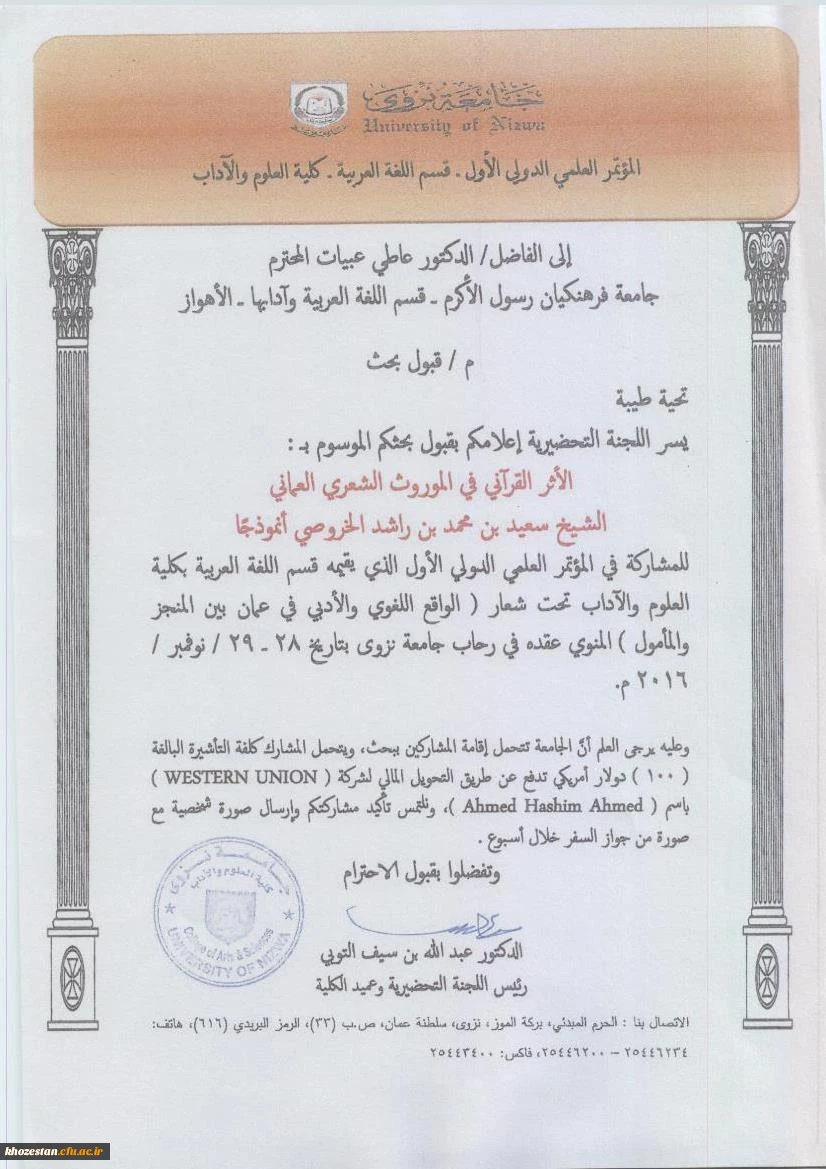 جامعة نزوى
University of Nizwa
المؤتمر العلمي الدولي الأول - قسم اللغة العربية - كلية العلوم والآداب
إلى الفاضل/ الدكتور عاطي عبيات المحترم
جامعة فرهنكيان رسول الأكرم - قسم اللغة العربية وآدابها - الأهواز
م / قبول بحث
تحية طيبة
يسر اللجنة التحضيرية إعلامكم بقبول بحثكم الموسوم بـ :
الأثر القرآني في الموروث الشعري العماني
الشيخ سعيد بن محمد بن راشد الخروصي أنموذجًا
للمشاركة في المؤتمر العلمي الدولي الأول الذي يقيمه قسم اللغة العربية بكلية
العلوم والآداب تحت شعار ( الواقع اللغوي والأدبي في عمان بين المنجز
والمأمول ) المنوي عقده في رحاب جامعة نزوى بتاريخ ٢٨ - ٢٩ / نوفمبر /
٢٠١٦ م.
وعليه يرجى العلم أنَّ الجامعة تتحمل إقامة المشاركين ببحث، ويتحمل المشارك كلفة التأشيرة البالغة
( ١٠٠ ) دولار أمريكي تدفع عن طريق التحويل المالي لشركة ( WESTERN UNION )
باسم ( Ahmed Hashim Ahmed )، ونلتمس تأكيد مشاركتكم وإرسال صورة شخصية مع
صورة من جواز السفر خلال أسبوع .
وتفضلوا بقبول الاحترام
جامعة نزوى
كلية العلوم والآداب
College of Arts & Sciences
UNIVERSITY OF NIZWA
الدكتور عبد الله بن سيف التوبي
رئيس اللجنة التحضيرية وعميد الكلية
الاتصال بنا : الحرم المبدئي، بركة الموز، نزوى، سلطنة عمان، ص.ب (٣٣)، الرمز البريدي (٦١٦)، هاتف:
٢٥٤٤٦٢٣٤ – ٢٥٤٤٦٢٠٠، فاكس: ٢٥٤٤٣٤٠٠
khozestan.cfu.ac.ir